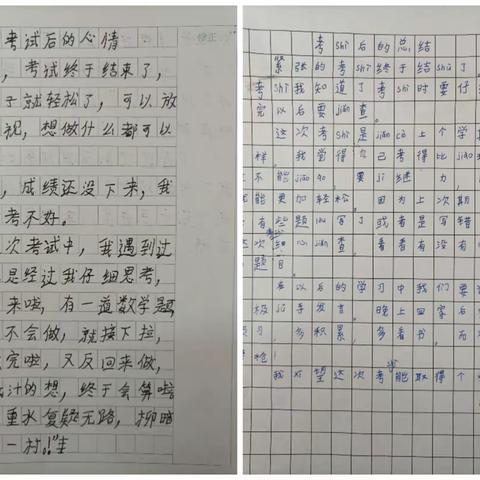 考试后的心情
，考试终于结束了，
子就轻松了，可以放
视，想做什么都可以
，成绩还没下来，我
考不好。
次考试中，我遇到过
是经过我仔细思考，
来啦，有一道数学题
不会做，就接下拉，
完啦，又反回来做，
计的想，终于会算啦
重水复疑无路，柳暗
一村。"
修正
考shì后的总结
紧张的考shì终于结shù了。
考shì我知道了考shì时要仔
完以后要jiǎn查。
这次考shì是jiǎn cǎ上个学
样。我觉得自己考得比jiào
不能jiāo ào，要jì继力，
能更加轻松。因为上次期
有些题 写了或者是写错
次细心jiǎn查，看看有没有
题目。
在以后的学习中我们要
极jǔ手发言。晚上回家后
习，多积累，多看书。而
枪！
我希望这次考shì能取得个